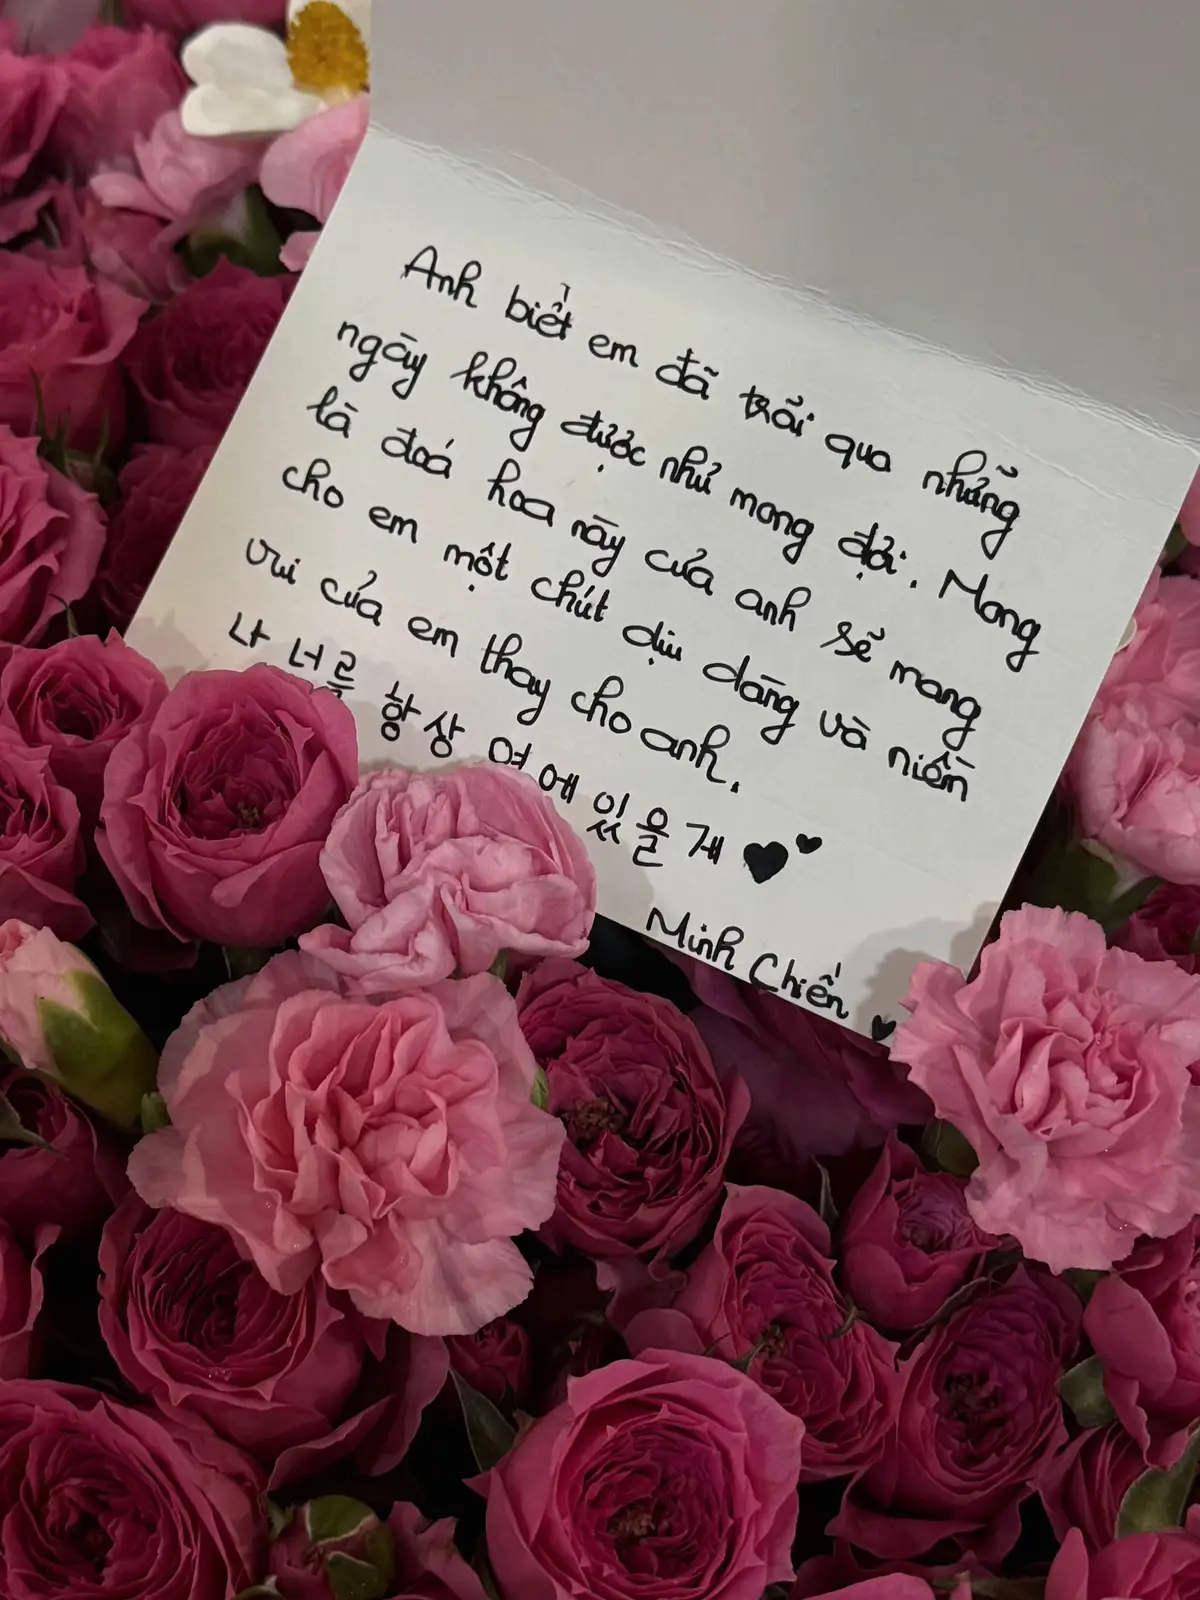 Anh biết em đã trải qua những
ngày không được như mong đợi. Mong
là đoá hoa này của anh sẽ mang
cho em một chút dịu dàng và niềm
vui của em thay cho anh.
나 너를 항상 여에 있을게
Minh Chiến